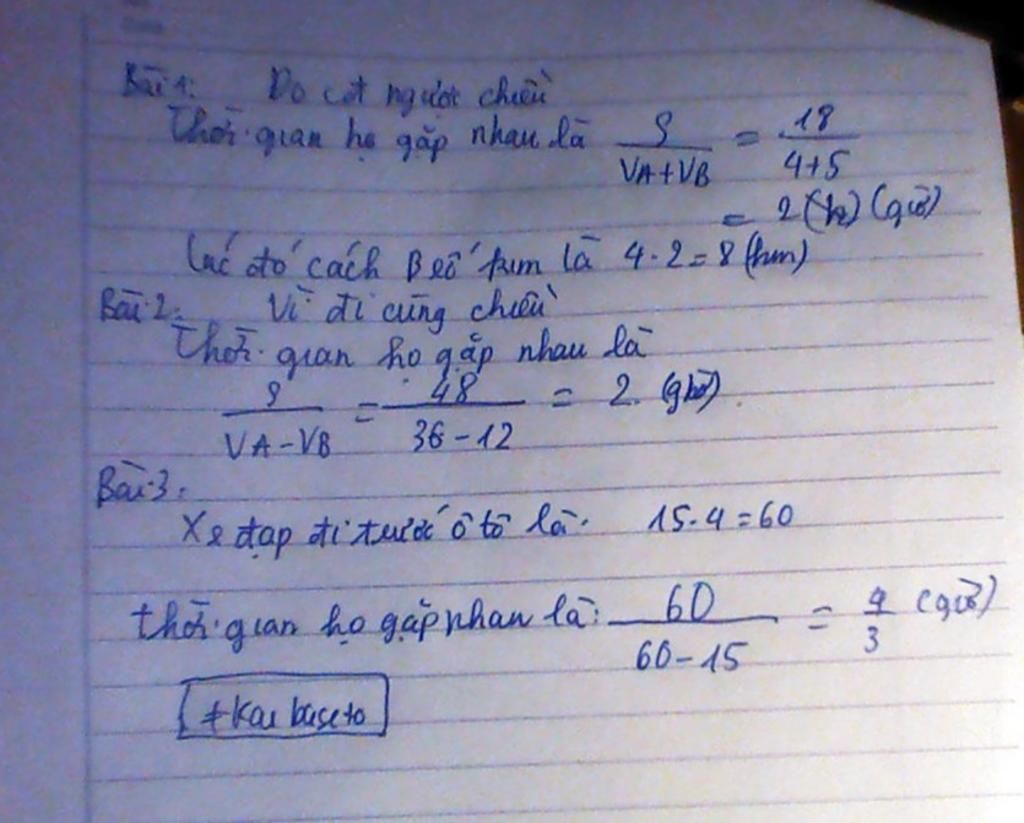 Bài 1: Do cđt ngược chiều
Thời gian họ gặp nhau là S / VA+VB = 18 / 4+5
= 2 (h) (giờ)
Lúc đó cách B số km là 4.2=8 (km)
Bài 2: Vì đi cùng chiều
Thời gian họ gặp nhau là
S / VA-VB = 48 / 36-12 = 2 (giờ).
Bài 3:
Xe đạp đi trước ô tô là: 15.4=60
thời gian họ gặp nhau là: 60 / 60-15 = 4 / 3 (giờ)